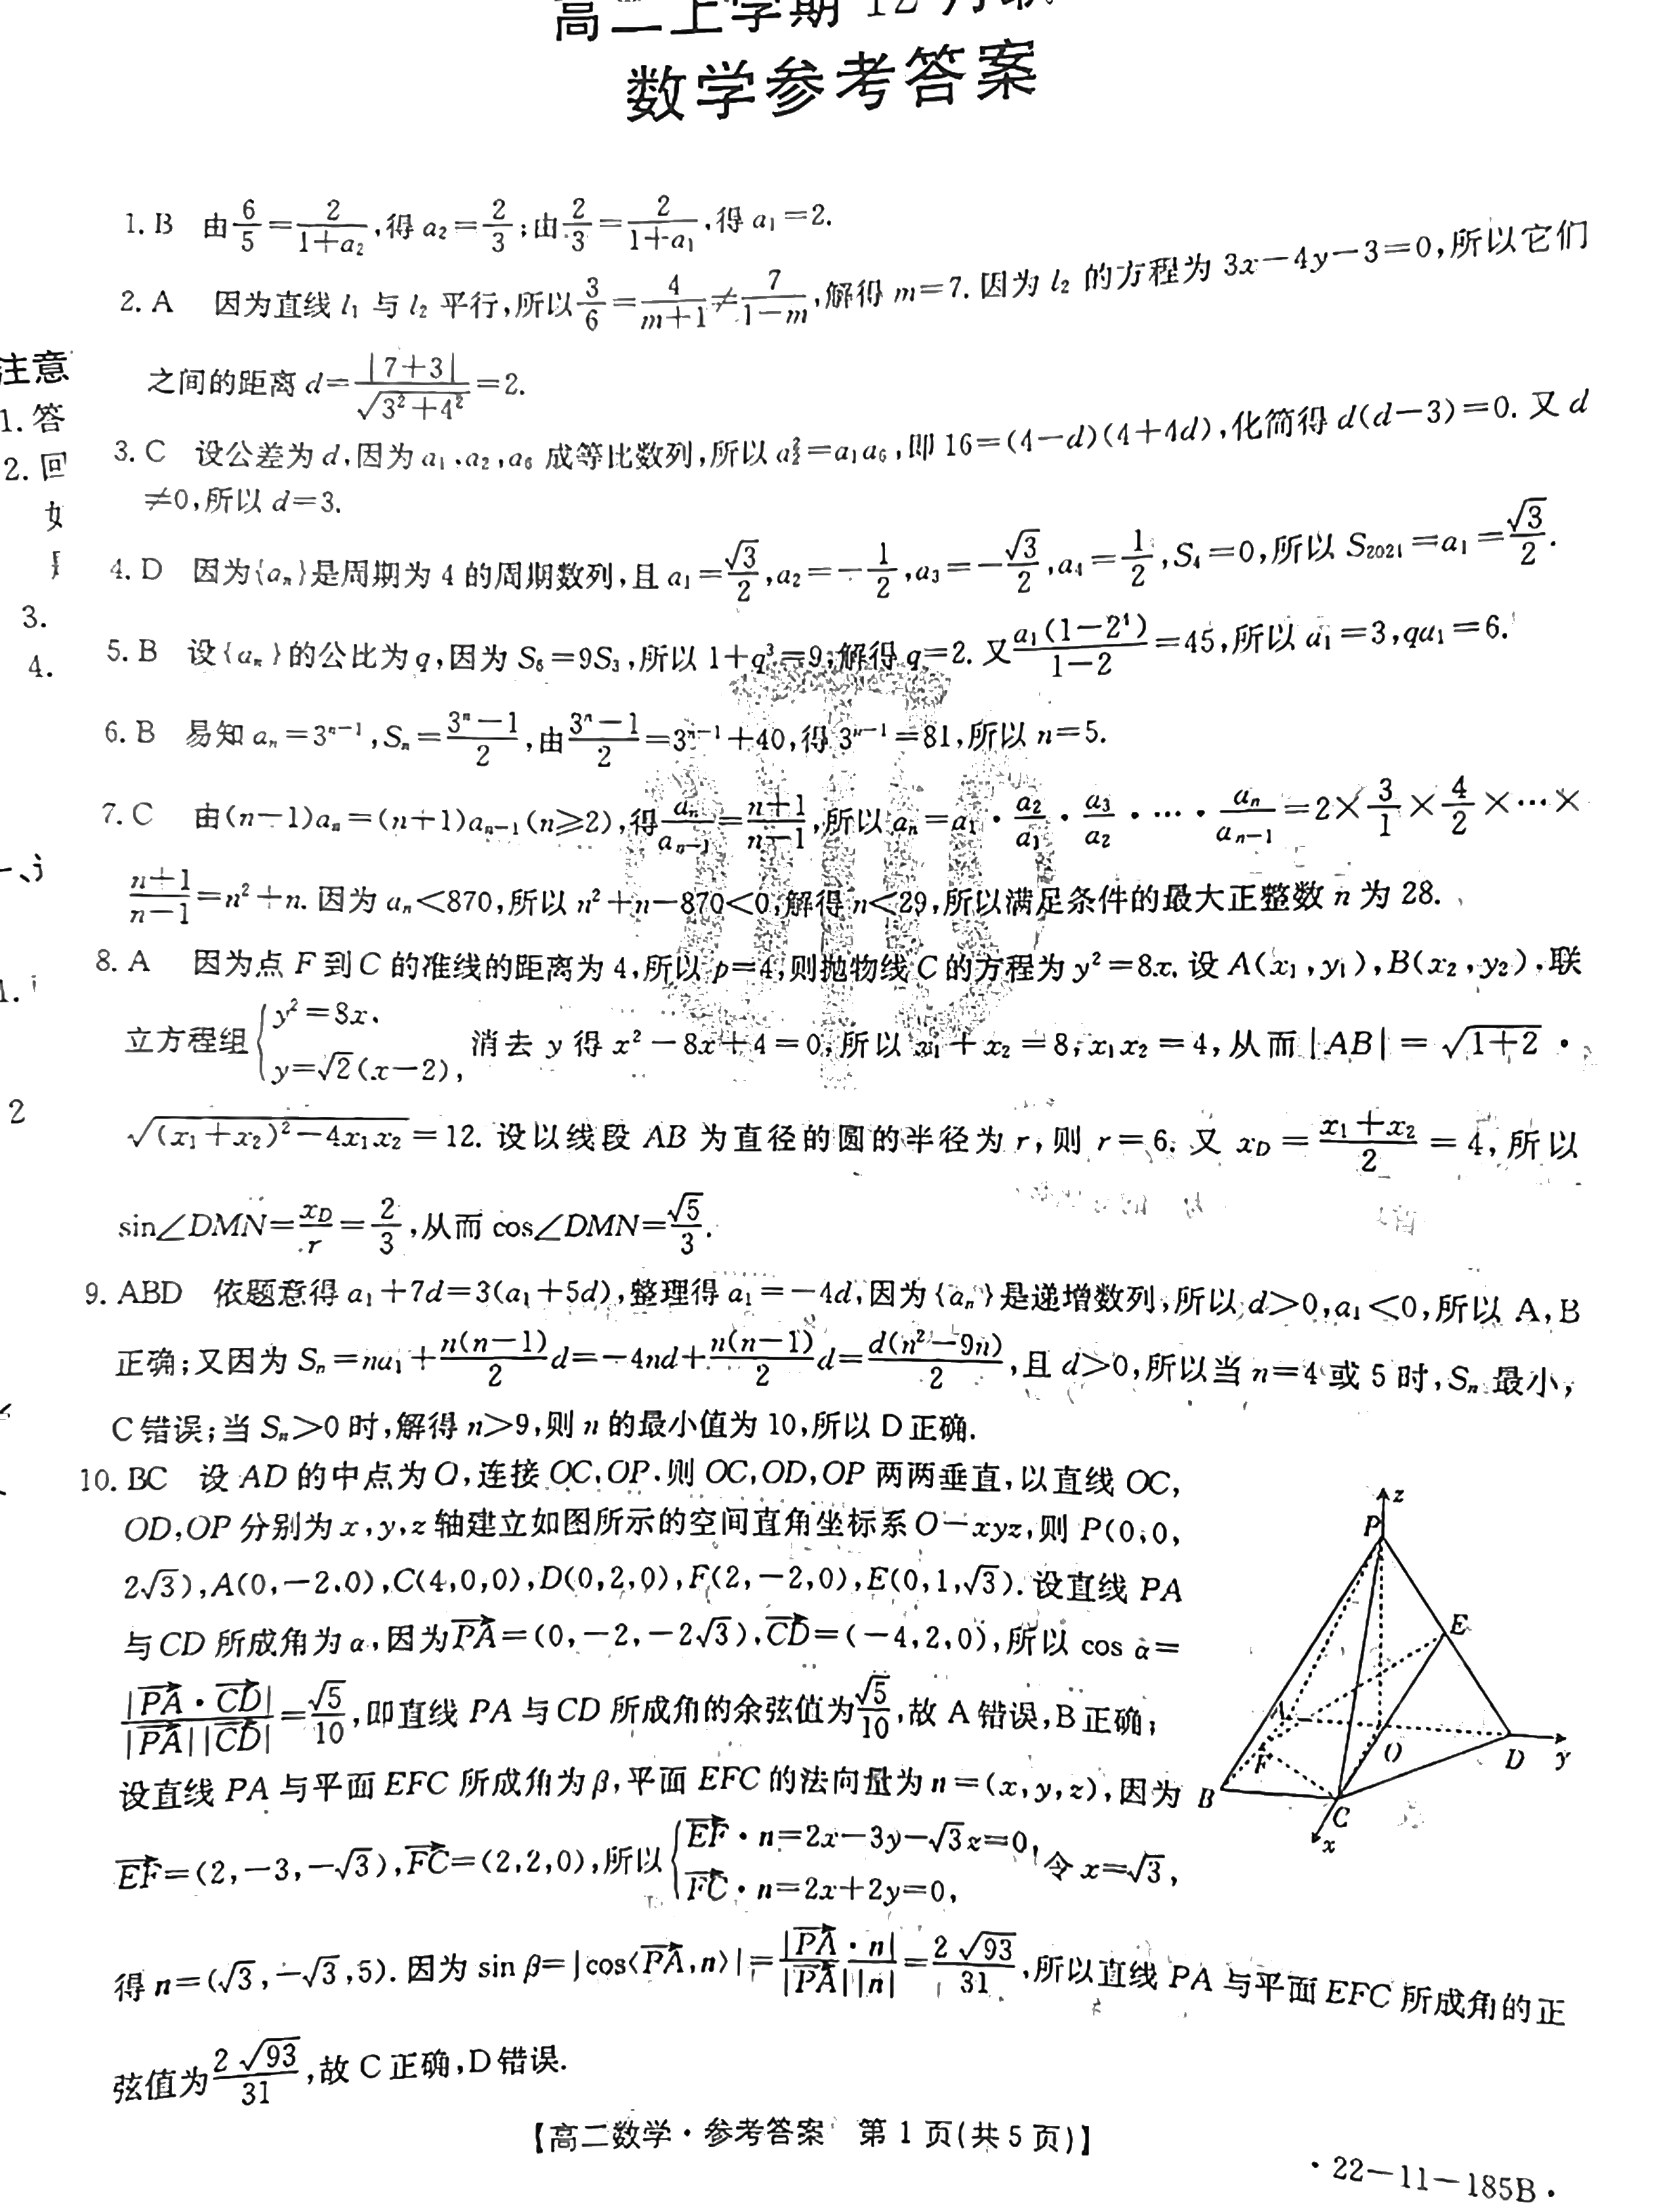 高二上学期12月
数学参考答案
1. B 由6/5=2/(1+a₂),得a₂=2/3;由2/3=2/(1+a₁),得a₁=2.
2. A 因为直线l₁与l₂平行,所以3/6=4/(m+1)≠7/(1-m),解得m=7.因为l₂的方程为3x-4y-3=0,所以它们
之间的距离d=|7+3|/√(3²+4²)=2.
注意
1. 答
3. C 设公差为d,因为a₁,a₂,a₆成等比数列,所以a₂²=a₁a₆,即16=(4-d)(4+4d),化简得d(d-3)=0.又d
2. 回
≠0,所以d=3.
如
4. D 因为{aₙ}是周期为4的周期数列,且a₁=√3/2,a₂=-1/2,a₃=-√3/2,a₄=1/2,S₄=0,所以S₂₀₂₁=a₁=√3/2.
3.
4.
5. B 设{aₙ}的公比为q,因为S₆=9S₃,所以1+q³=9,解得q=2.又a₁(1-2⁴)/(1-2)=45,所以a₁=3,qa₁=6.
6. B 易知aₙ=3ⁿ⁻¹,Sₙ=(3ⁿ-1)/2,由(3ⁿ-1)/2=3ⁿ⁻¹+40,得3ⁿ⁻¹=81,所以n=5.
7. C 由(n-1)aₙ=(n+1)aₙ₋₁(n≥2),得aₙ/aₙ₋₁=(n+1)/(n-1),所以aₙ=a₁·a₂/a₁·a₃/a₂·…·aₙ/aₙ₋₁=2×3/1×4/2×…×
(n+1)/(n-1)=n²+n.因为aₙ<870,所以n²+n-870<0,解得n<29,所以满足条件的最大正整数n为28.
8. A 因为点F到C的准线的距离为4,所以p=4,则抛物线C的方程为y²=8x.设A(x₁,y₁),B(x₂,y₂).联
1.
立方程组{y²=8x, y=√2(x-2), 消去y得x²-8x+4=0,所以x₁+x₂=8,x₁x₂=4,从而|AB|=√(1+2)·
2
√((x₁+x₂)²-4x₁x₂)=12.设以线段AB为直径的圆的半径为r,则r=6.又x_D=(x₁+x₂)/2=4,所以
sin∠DMN=x_D/r=2/3,从而cos∠DMN=√5/3.
9. ABD 依题意得a₁+7d=3(a₁+5d),整理得a₁=-4d,因为{aₙ}是递增数列,所以d>0,a₁<0,所以A,B
正确;又因为Sₙ=na₁+n(n-1)/2 d=-4nd+n(n-1)/2 d=d(n²-9n)/2,且d>0,所以当n=4或5时,Sₙ最小,
C错误;当Sₙ>0时,解得n>9,则n的最小值为10,所以D正确.
10. BC 设AD的中点为O,连接OC,OP.则OC,OD,OP两两垂直,以直线OC,
OD,OP分别为x,y,z轴建立如图所示的空间直角坐标系O-xyz,则P(0,0,
2√3),A(0,-2,0),C(4,0,0),D(0,2,0),F(2,-2,0),E(0,1,√3).设直线PA
与CD所成角为α,因为PA→=(0,-2,-2√3),CD→=(-4,2,0),所以cos α=
|PA→·CD→|/(|PA→||CD→|)=√5/10,即直线PA与CD所成角的余弦值为√5/10,故A错误,B正确;
设直线PA与平面EFC所成角为β,平面EFC的法向量为n=(x,y,z),因为
EF→=(2,-3,-√3),FC→=(2,2,0),所以{EF→·n=2x-3y-√3z=0, FC→·n=2x+2y=0, 令x=√3,
得n=(√3,-√3,5).因为sin β=|cos⟨PA→,n⟩|=|PA→·n|/(|PA→||n|)=2√93/31,所以直线PA与平面EFC所成角的正
弦值为2√93/31,故C正确,D错误.
z
P
E
A
F
O
D
y
B
C
x
【高二数学·参考答案 第1页(共5页)】
·22-11-185B·